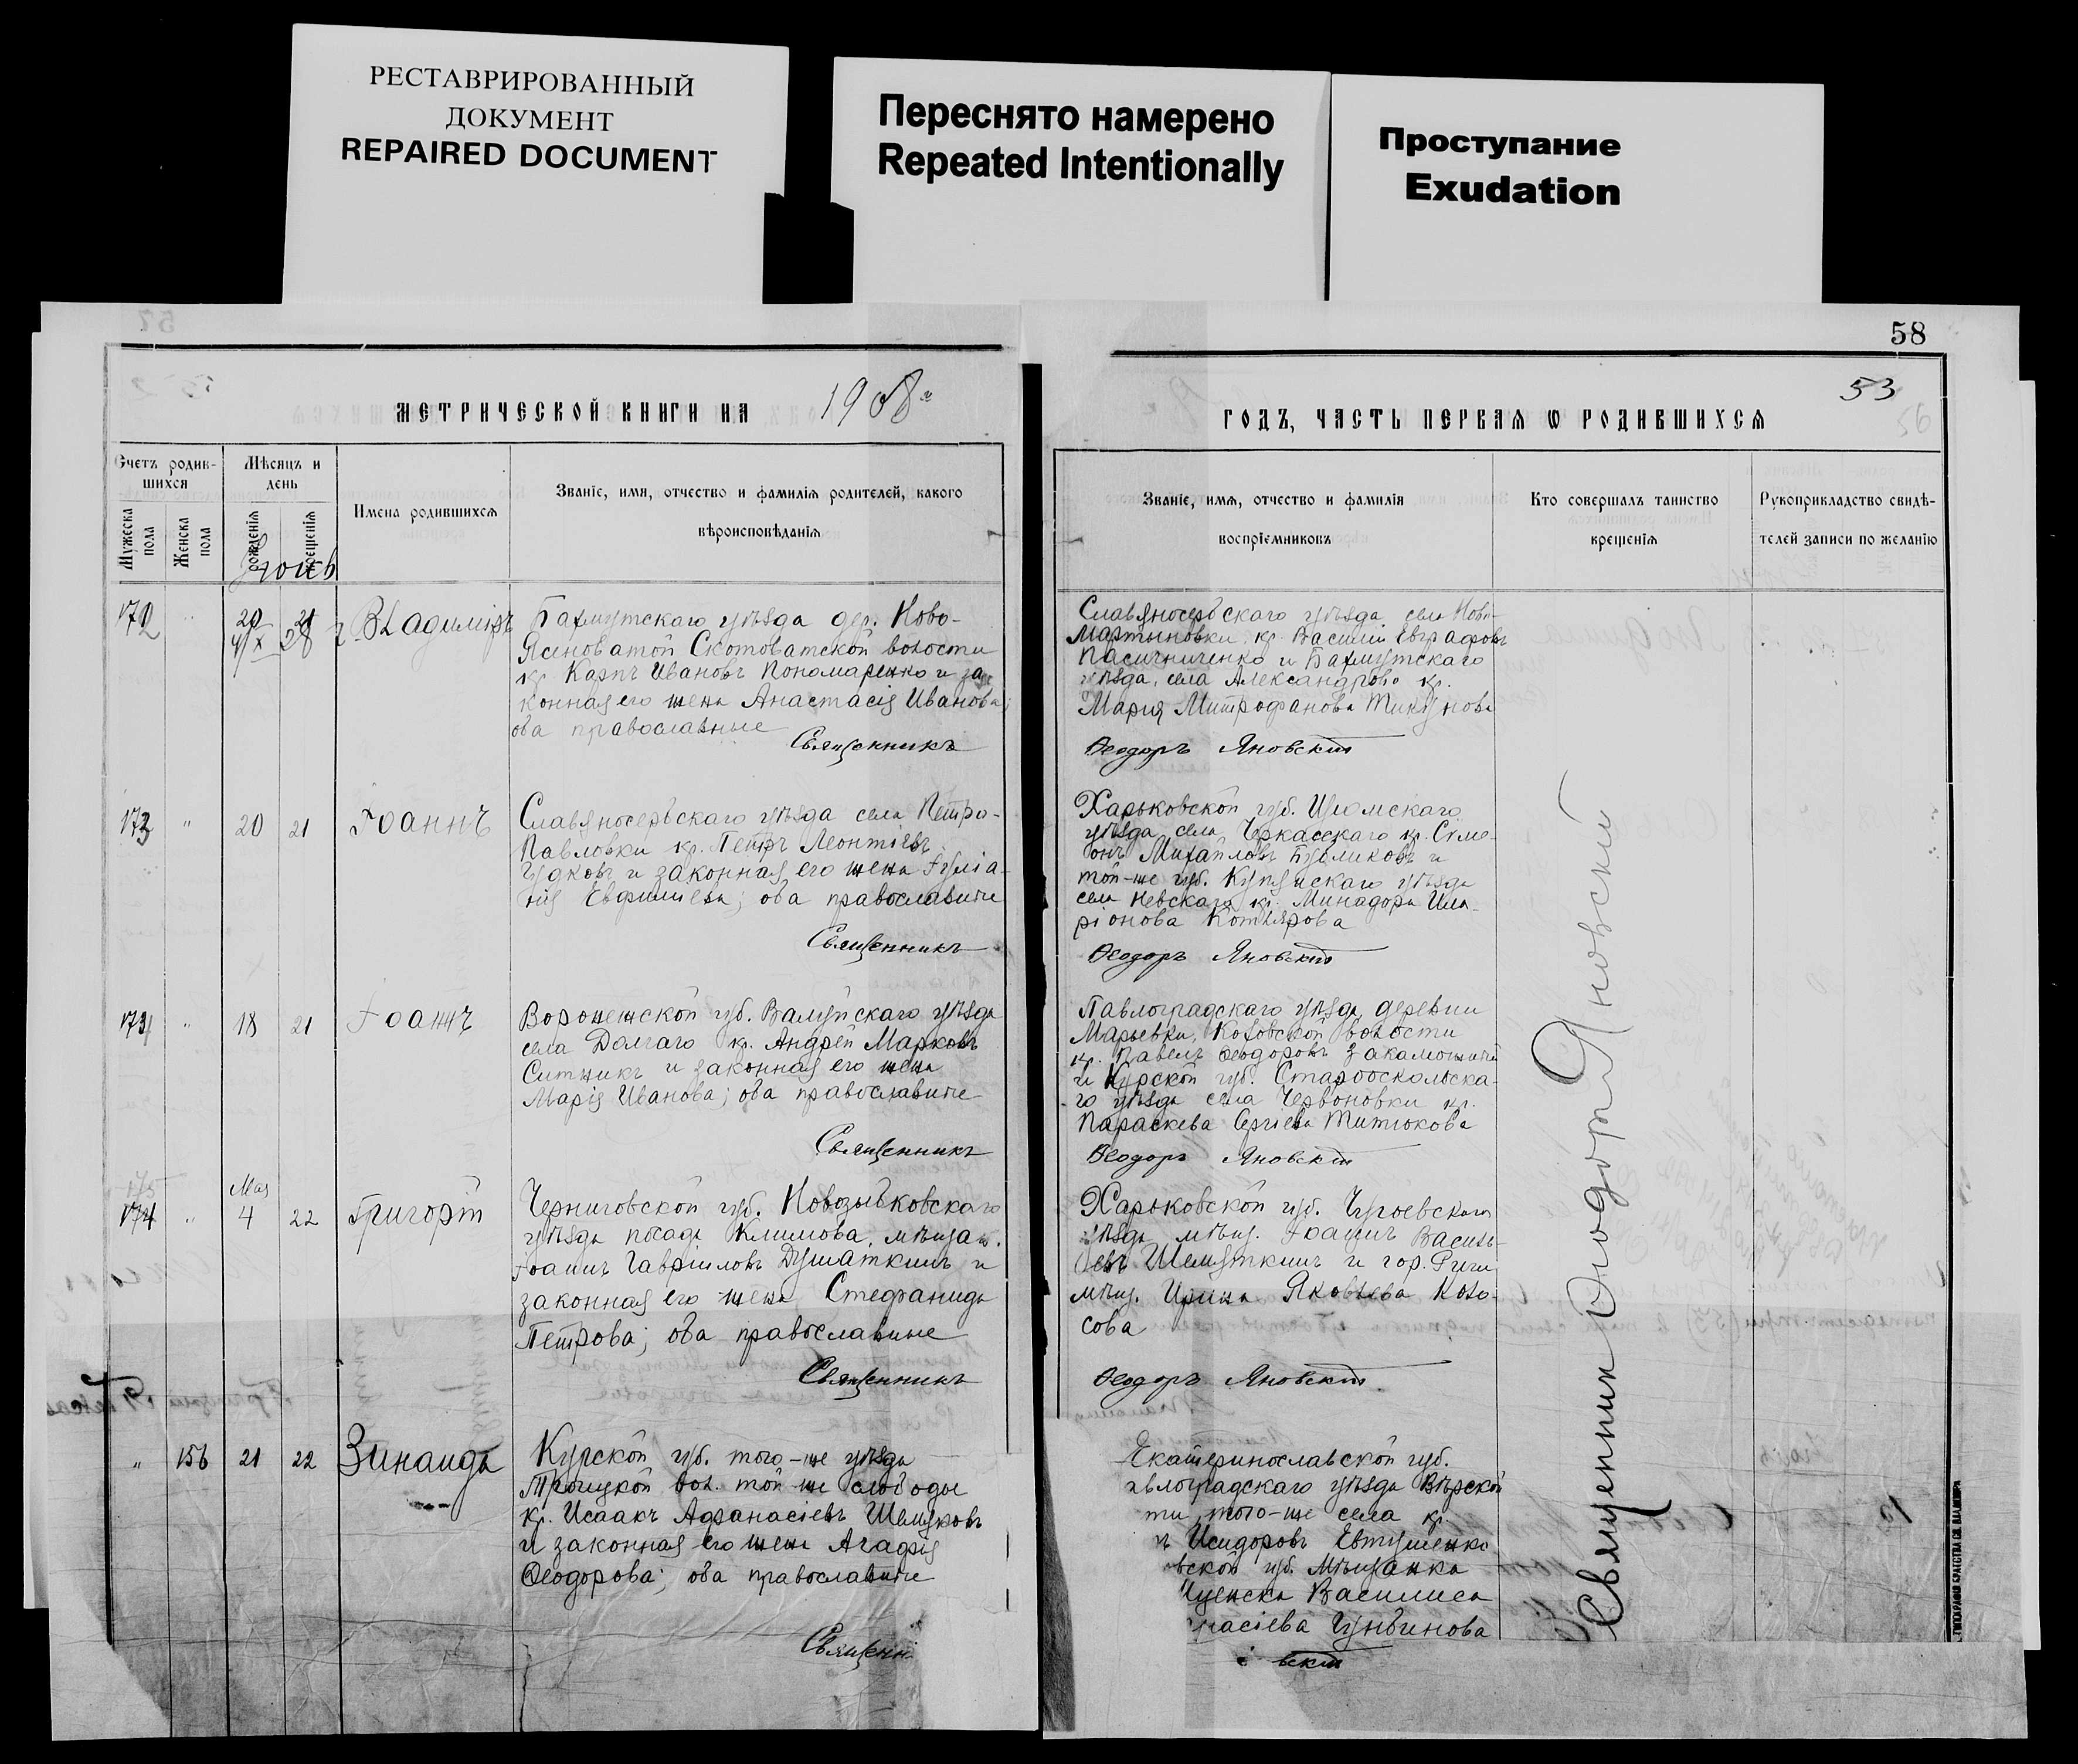 РЕСТАВРИРОВАННЫЙ
ДОКУМЕНТ
REPAIRED DOCUMENT
Переснято намерено
Repeated Intentionally
Проступание
Exudation
58
53
МЕТРИЧЕСКОЙ КНИГИ НА 1908 г
ГОДЪ, ЧАСТЬ ПЕРВАЯ Ѡ РОДИВШИХСЯ
Счетъ родив-
шихся
Мужеска пола
Женска пола
Мѣсяцъ и
день
рожденія
крещенія
Имена родившихся
Званіе, имя, отчество и фамилія родителей, какого
вѣроисповѣданія
Званіе, имя, отчество и фамилія
воспріемниковъ
Кто совершалъ таинство
крещенія
Рукоприкладство свидѣ-
телей записи по желанію
172 " 20 21 Владиміръ
Бахмутскаго уѣзда дер. Ново-
Ясиноватой Скотоватской волости
кр. Карпъ Ивановъ Пономаренко и за
конная его жена Анастасія Иванова;
оба православные
Священникъ
Славяносербскаго уѣзда села Ново-
Мартыновки кр. Василій Евграфовъ
Пасичниченко и Бахмутскаго
уѣзда, села Александрово кр.
Мария Митрофанова
Ѳеодоръ Яновскій
173 " 20 21 Іоаннъ
Славяносербскаго уѣзда села Петро-
Павловки кр. Петръ Леонтіевъ
Гудковъ и законная его жена Іуліа-
нія Евфиміева; оба православные
Священникъ
Харьковской губ. Изюмскаго
уѣзда села Черкасскаго кр. Симе-
онъ Михайловъ Бубликовъ и
той-же губ. Купянскаго уѣзда
села Невскаго кр. Минадора Ила-
ріонова Котлярова
Ѳеодоръ Яновскій
174 " 18 21 Іоаннъ
Воронежской губ. Валуйскаго уѣзда
села Долгаго кр. Андрей Марковъ
Ситникъ и законная его жена
Марія Иванова; оба православные
Священникъ
Павлоградскаго уѣзда, деревни
Марьевки, Коховской волости
кр. Павелъ Ѳеодоровъ
и Курской губ. Старооскольска-
го уѣзда села Червоновки кр.
Параскева Сергіева Титюкова
Ѳеодоръ Яновскій
175
Мая
174 " 4 22 Григорій
Черниговской губ. Новозыбковскаго
уѣзда посада Климова, мѣщан.
Іоаннъ Гавріиловъ Душаткинъ и
законная его жена Стефанида
Петрова; оба православные
Священникъ
Харьковской губ. Чугоевскаго
уѣзда мѣщ. Іоаннъ Василь-
евъ Шемуткинъ и гор. Риги
мѣщ. Ирина Яковлева Коло-
сова
Ѳеодоръ Яновскій
" 156 21 22 Зинаида
Курской губ. того-же уѣзда
Троицкой вол. той-же слободы
кр. Исаакъ Афанасіевъ Шемуковъ
и законная его жена Агафія
Ѳеодорова; оба православные
Священн
Екатеринославской губ.
авлоградскаго уѣзда
ти, того-же села кр.
ъ Исидоровъ Евтушенко
вской губ. Мѣщанка
Василиса
насіева
вскій
Священник Ѳиодор Яновский